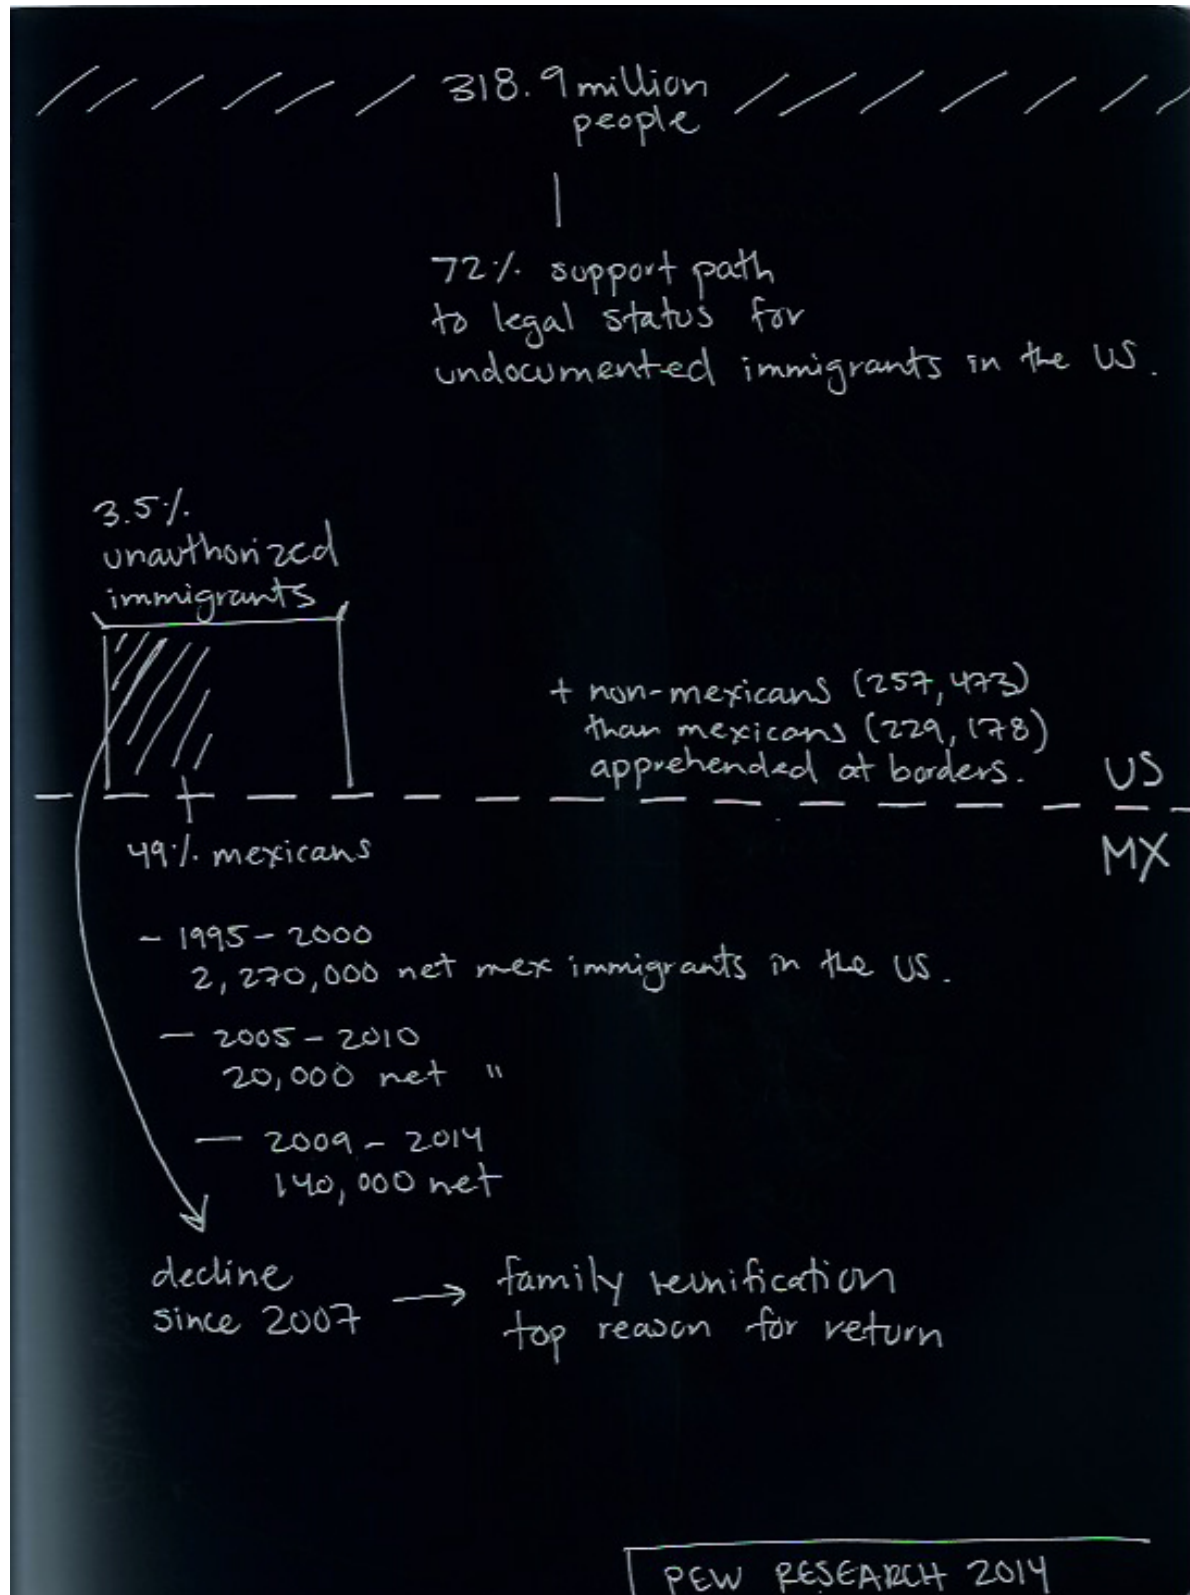 318.9 million
people
72% support path
to legal status for
undocumented immigrants in the US.
3.5%
unauthorized
immigrants
+ non-mexicans (257,473)
than mexicans (229,178)
apprehended at borders.
US
MX
49% mexicans
- 1995-2000
2,270,000 net mex immigrants in the US.
- 2005-2010
20,000 net "
- 2009-2014
140,000 net
decline
since 2007
family reunification
top reason for return
PEW RESEARCH 2014